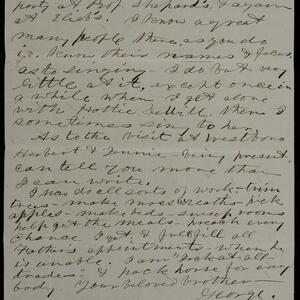 party at Prof. Shepard's, & again
at Zieb's. I know a great
many people there, as you do
i.e. know their names & faces.
as to singing - I do but very
little at it, except once in
a while when I get alone
with Hattie Sewill, then I
sometimes sing to her.
As to the visit at Westboro
Herbert & Jennie - being present,
can tell you more than
I can write.
I now do all sorts of work - trim
trees - make wreaths - pick
apples - make beds - sweep rooms
help get the meals - preach every
chance I get, & fulfill all
Father's appointments - when he
is unable. I am "Jack-at-all-
trades" & pack horse for every
body. Your beloved brother
George.